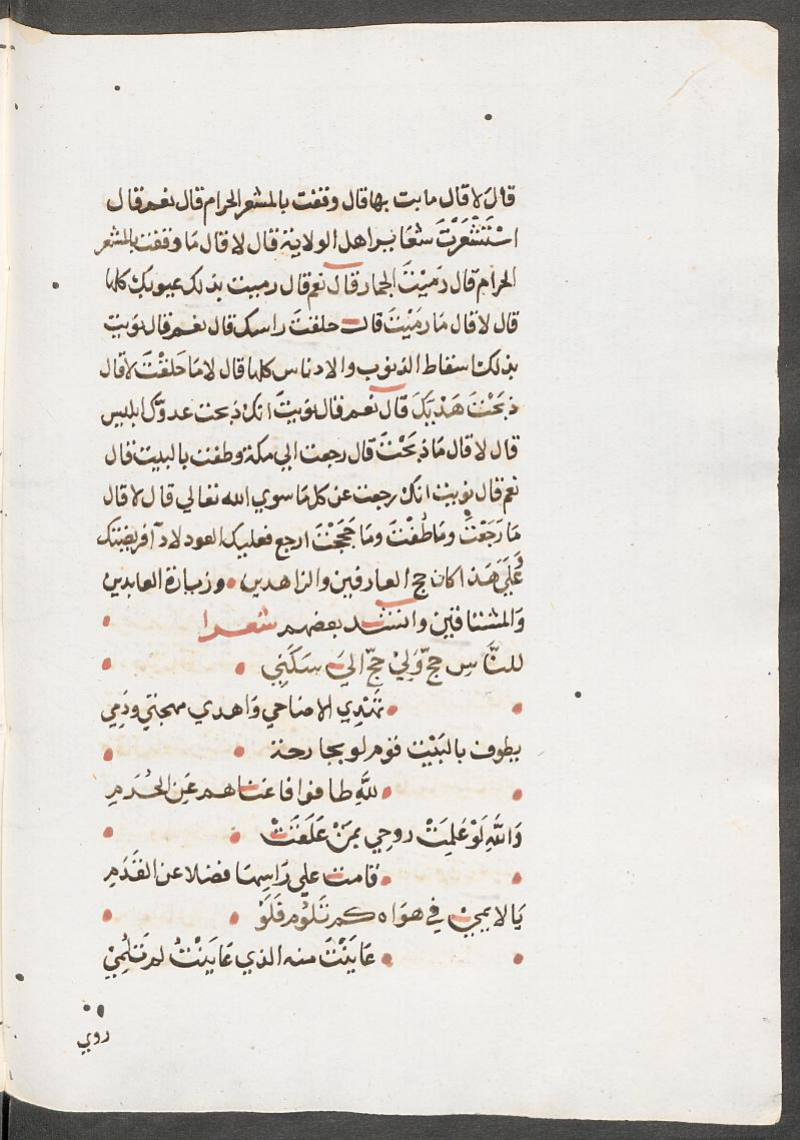 قال لا قال ما بت بها قال وقفت بالمشعر الحرام قال نعم قال
اسْتَشْعَرْتَ شعَاير اهل الولاية قال لا قال مَا وقفت بالمشعر
الحرام قال رَمَيْتَ الجمار قال نعم قال رميت بذلك عيوبك كلها
قال لا قال مَا رَمَيْتَ قال حلقتَ راسك قال نعم قال نويت
بذلك اسقاط الذنوب والادناس كلها قال لا مَا حَلَقْتَ لا قال
ذَبَحْتَ هَدْيَكَ قال نعم قال نويتَ انك ذبحت عدوّك ابليس
قال لا قال مَا ذبَحْتَ قال رجعت الي مكة وطفت بالبيت قال
نعم قال نويت انك رجعت عن كلمَا سوي الله تعالي قال لا قال
مَا رَجَعْتَ ومَا طُفْتَ ومَا حَجَجْتَ ارجع فعليك العود لادآ فريضتك
عَلَيَ هَذا كان حج العارفين والزاهدين وزيارة العابدين
وَالمشتاقين وانشد بعضهم شعرا
للنَّاسِ حجّ وَليْ حجّ اليَ سَكَنِي
تهَدي الاضاحي وَاهدي مهجتي ودَمِي
يطوف بالبَيْت قوم لو بجارحة
للَّهِ طافوا فاغناهم عَن الحُرَمِ
وَاللَّهِ لَوْ عَلِمَتْ روحِي بمَنْ عَلَقَتْ
قامت علي رَاسِهَا فضلا عن القَدَمِ
يَالايميْ في هوَاه كم تَلوُمُ فَلَوْ
عايَنْتَ منه الذي عَايَنْتُ لم تَلُمِيْ
روي